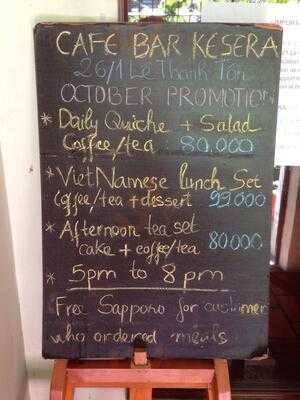 CAFE BAR KESERA
26/1 Lê Thánh Tôn
OCTOBER PROMOTION
* Daily Quiche + Salad
Coffee/tea : 80,000
* VietNamese lunch Set
Coffee/tea + dessert 99000
* Afternoon tea set
cake + coffee/tea 80000
* 5pm to 8pm
Free Sapporo for customer
who ordered meals